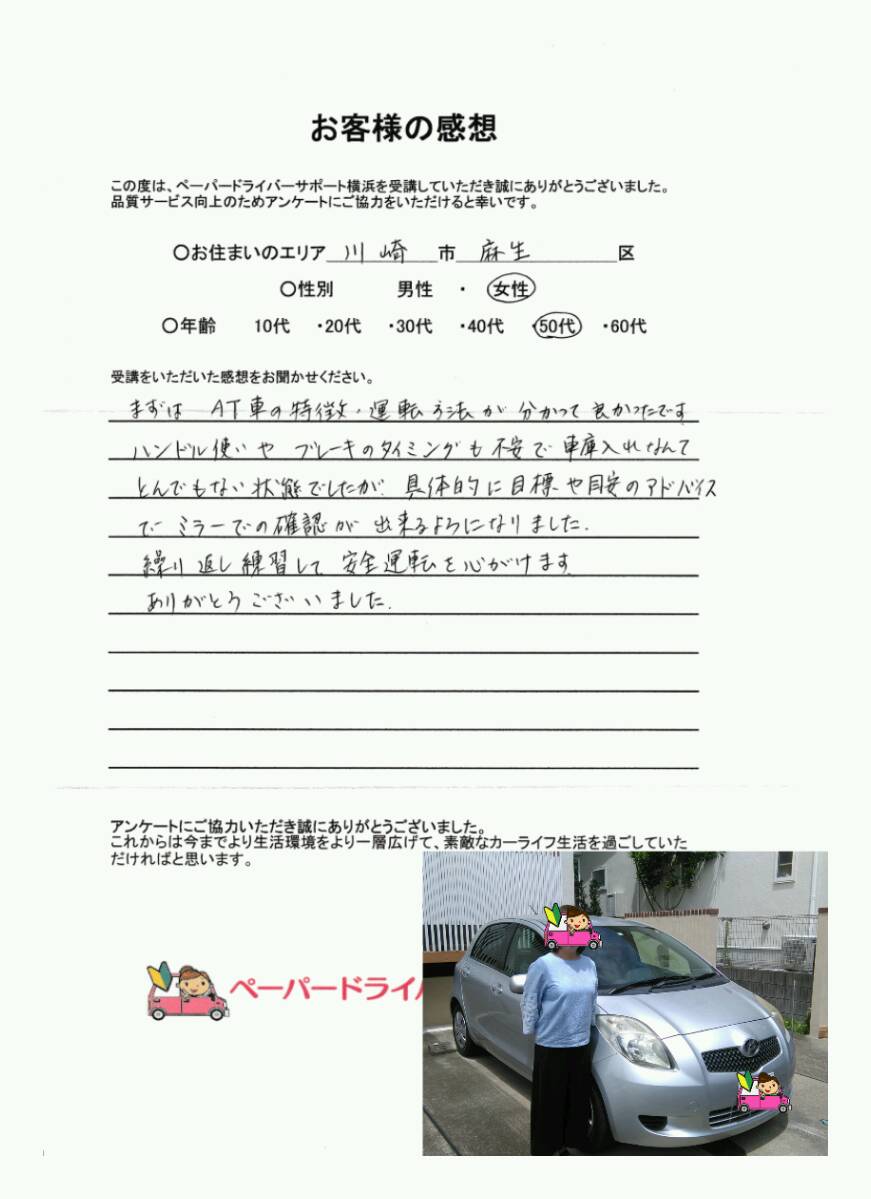 お客様の感想
この度は、ペーパードライバーサポート横浜を受講していただき誠にありがとうございました。
品質サービス向上のためアンケートにご協力をいただけると幸いです。
〇お住まいのエリア 川崎 市 麻生 区
〇性別 男性 ・ 女性
〇年齢 10代 ・20代 ・30代 ・40代 ・50代 ・60代
受講をいただいた感想をお聞かせください。
まずは AT車の特徴・運転方法が 分かって良かったです
ハンドル使いや ブレーキのタイミングも 不安で 車庫入れなんて
とんでもない状態でしたが 具体的に目標や目安のアドバイス
で ミラーでの確認が 出来るようになりました.
繰り返し練習して 安全運転を心がけます
ありがとうございました.
アンケートにご協力いただき誠にありがとうございました。
これからは今までより生活環境をより一層広げて、素敵なカーライフ生活を過ごしていた
だければと思います。
ペーパードライバ